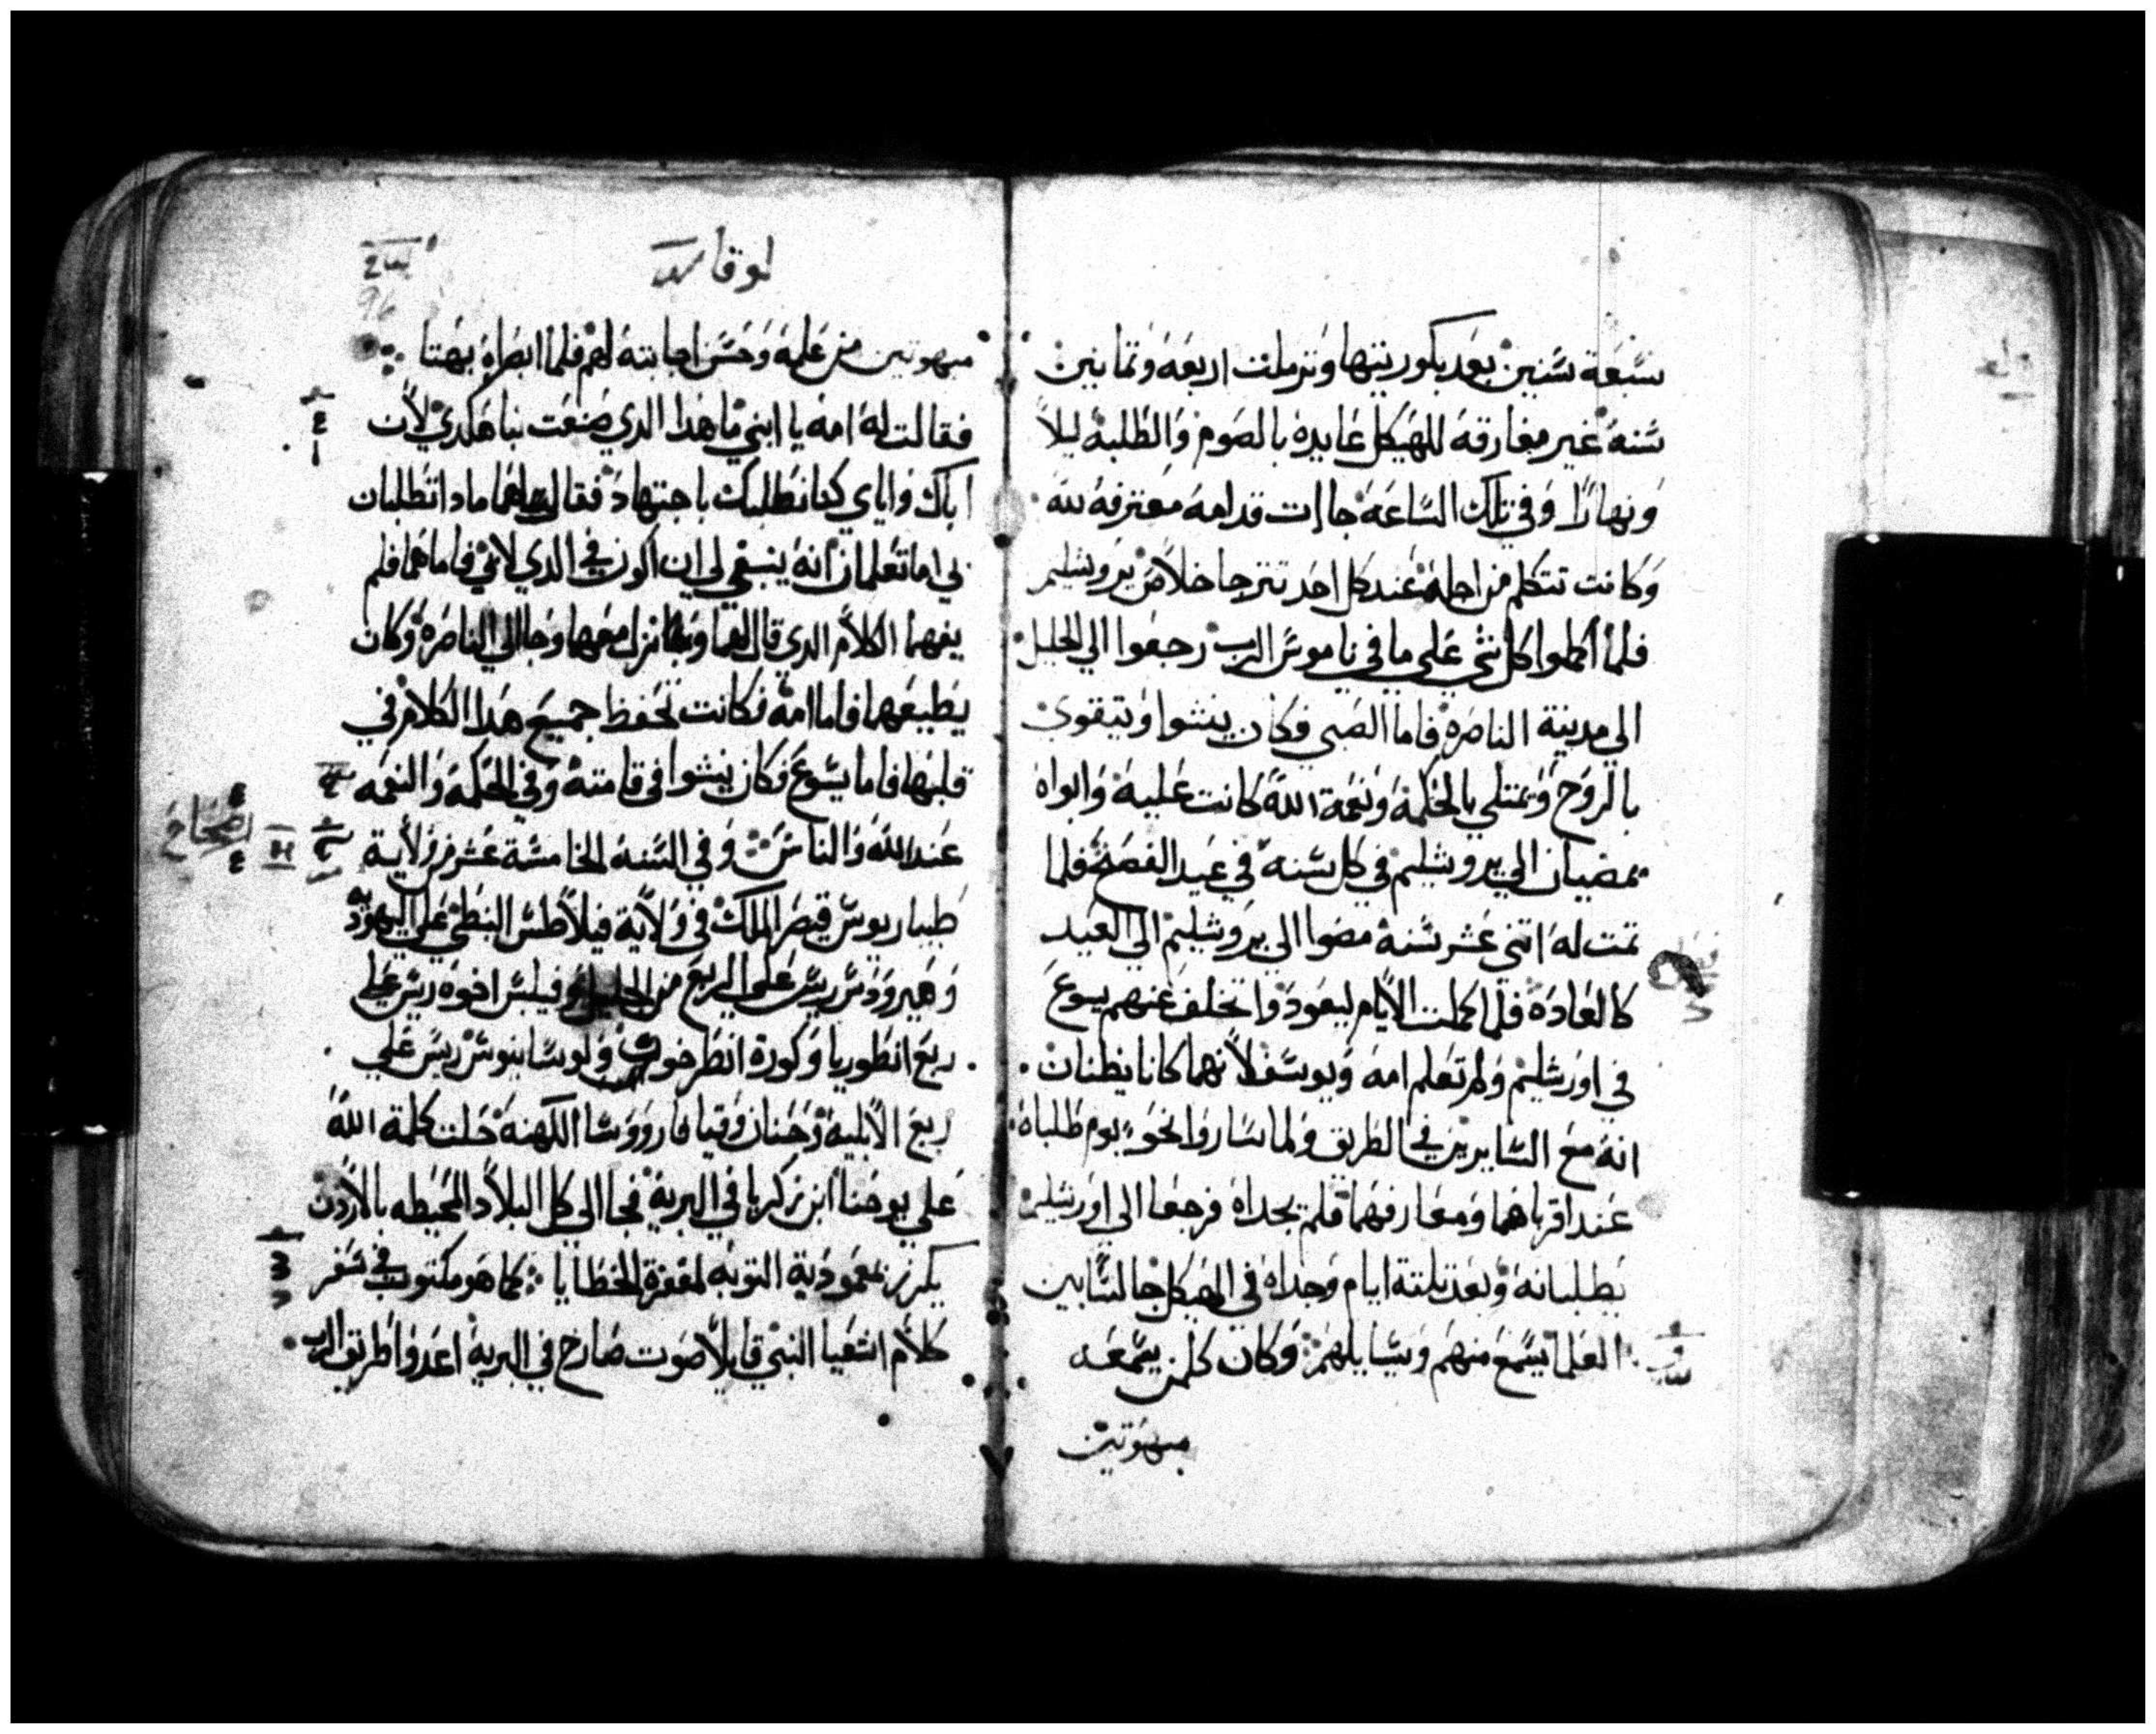 سبعة سنين بعد بكوريتها وترملت اربعه وتمانين
سنه غير مفارقه للهيكل عابده بالصوم والطلبه ليلاً
ونهارًا وفي تلك الساعه جاات قدامه معترفه لله
وكانت تتكلم من اجله عند كل احد تترجا خلاص يروشليم
فلما اكملوا كل شي على ما في ناموس الرب رجعوا الي الجليل
الي مدينة الناصره فاما الصبي فكان ينشوا ويتقوي
بالروح ويمتلي بالحكمه ونعمة الله كانت عليه وابواه
يمضيان الي يروشليم في كل سنه في عيد الفصح فلما
تمت له اتني عشر سنه مضوا الي يروشليم الي العيد
كالعاده فلما كملت الايام ليعودوا تخلف عنهم يسوع
في اورشليم ولم تعلم امه ويوسف لانهما كانا يظنان
انه مع السايرين في الطريق ولما ساروا نحو يوم طلباه
عند اقرباهما ومعارفهما فلم يجداه فرجعا الي اورشليم
يطلبانه وبعد تلتة ايام وجداه في الهيكل جالسًا بين
العلما يسمع منهم ويسايلهم وكان كلمن يسمعه
مبهوتين
لوقا
96
مبهوتين من علمه وحسن اجابته لهم فلما ابصراه بهتا
فقالت له امه يا ابني ما هذا الدي صنعت بنا هكدي لان
اباك واياي كنا نطلبك باجتهاد فقال لهما مادا تطلبان
لي اما تعلمان انه ينبغي لي ان اكون في الدي لابي فاما هما فلم
يفهما الكلام الدي قال لهما ونزل معهما وجا الي الناصره وكان
يطيعهما فاما امه فكانت تحفظ جميع هدا الكلام في
قلبها فاما يسوع فكان ينشوا في قامته وفي الحكمه والنعمه
عند الله والناس وفي السنه الخامسة عشر من ولاية
الاصحاح
طيباريوس قيصر الملك في ولاية فيلاطس البنطي علي اليهوديه
وهيرودس ريس علي الربع من الجليل وفيلبس اخوه ريس علي
ربع انطوريا وكورة انطرخونس ولوسانيوس ريس علي
ربع الابلية وحنان وقيافا رووسا الكهنه حلت كلمة الله
علي يوحنا ابن زكريا في البرية فجا الي كل البلاد المحيطه بالاردن
يكرز بمعمودية التوبه لمغفرة الخطايا كما هو مكتوب في سفر
كلام اشعيا النبي قايلاً صوت صارخ في البرية اعدوا طريق الرب